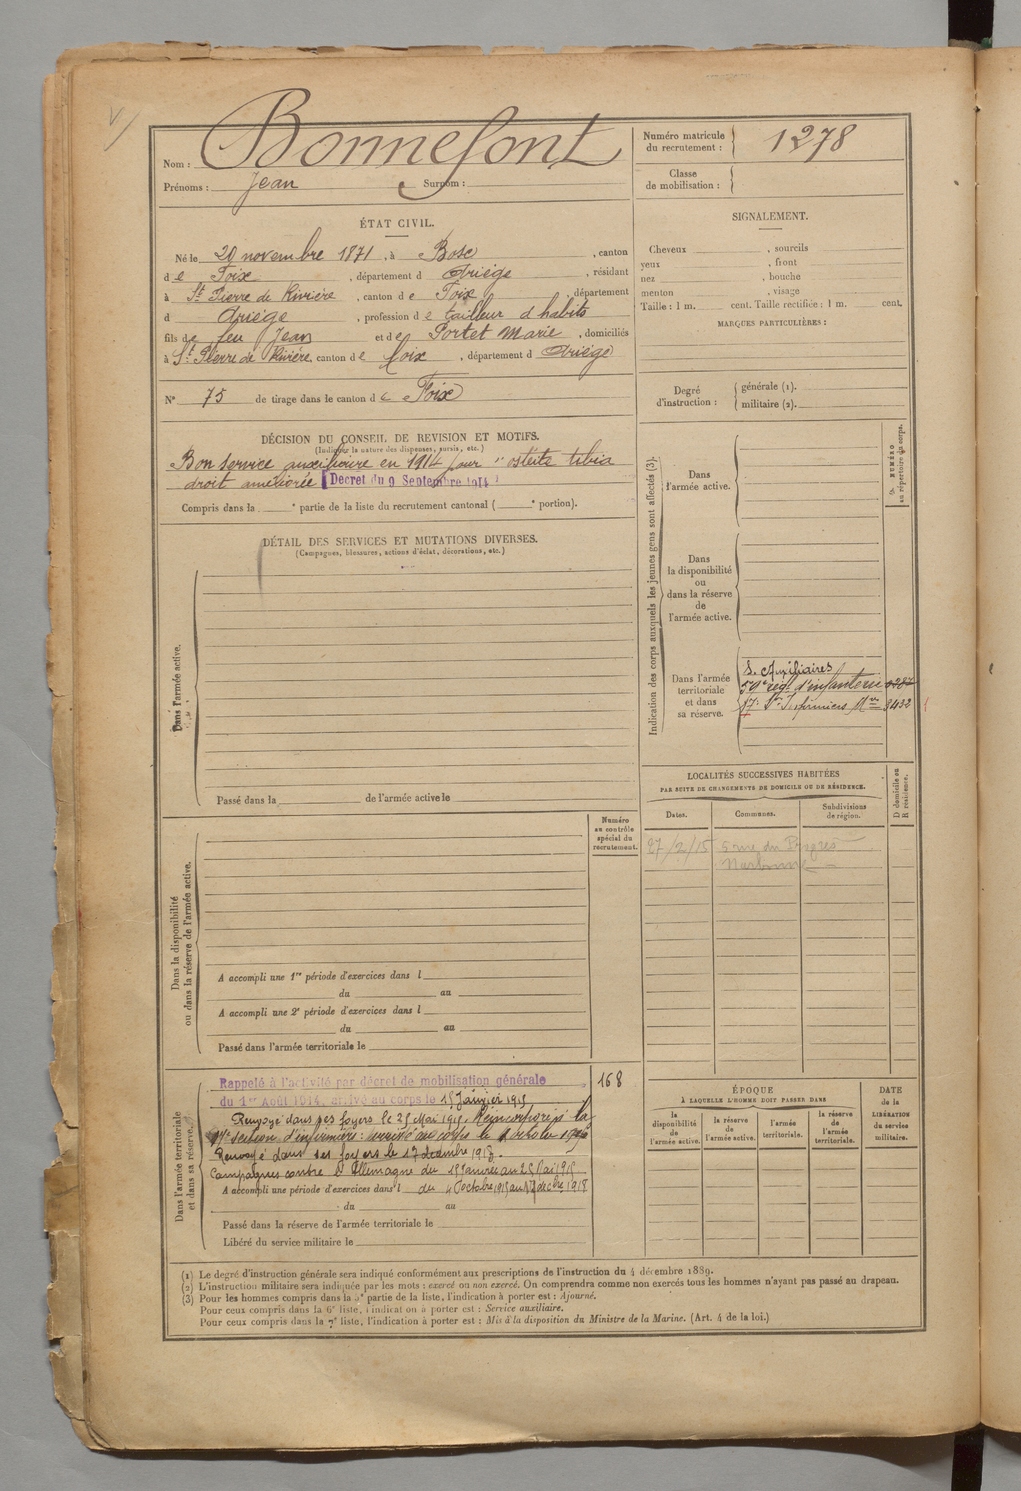 Nom : Bonnefont
Prénoms : Jean Surnom :
Numéro matricule du recrutement : 1278
Classe de mobilisation :
ÉTAT CIVIL.
Né le 20 novembre 1871, à Bosc, canton
de Foix, département d Ariège, résidant
à St Pierre de Rivière, canton de Foix, département
d Ariège, profession de tailleur d habits
fils de feu Jean et de Portet Marie, domiciliés
à St Pierre de Rivière, canton de Foix, département d Ariège
N° 75 de tirage dans le canton de Foix
DÉCISION DU CONSEIL DE REVISION ET MOTIFS.
(Indiquer la nature des dispenses, sursis, etc.)
Bon service auxiliaire en 1914 pour "ostéite tibia
droit améliorée (Décret du 9 Septembre 1914)
Compris dans la e partie de la liste du recrutement cantonal ( e portion).
DÉTAIL DES SERVICES ET MUTATIONS DIVERSES.
(Campagnes, blessures, actions d'éclat, décorations, etc.)
Dans l'armée active.
Passé dans la de l'armée active le
Numéro au contrôle spécial du recrutement.
Dans la disponibilité ou dans la réserve de l'armée active.
A accompli une 1re période d'exercices dans l
du au
A accompli une 2e période d'exercices dans l
du au
Passé dans l'armée territoriale le
Dans l'armée territoriale et dans sa réserve.
Rappelé à l'activité par décret de mobilisation générale 168
du 1er Août 1914, arrivé au corps le 15 Janvier 1915
Renvoyé dans ses foyers le 25 Mai 1915. Réincorporé à la
17e Section d'infirmiers : arrivé au corps le 4 octobre
Renvoyé dans ses foyers le 17 décembre 1918.
Campagnes contre l'Allemagne du 15 Janvier au 25 Mai 1915
A accompli une période d'exercices dans l du 4 octobre 1915 au 17 décbre 1918
du au
Passé dans la réserve de l'armée territoriale le
Libéré du service militaire le
SIGNALEMENT.
Cheveux , sourcils
yeux , front
nez , bouche
menton , visage
Taille : 1 m. cent. Taille rectifiée : 1 m. cent.
MARQUES PARTICULIÈRES :
Degré d'instruction : générale (1).
militaire (2).
Indication des corps auxquels les jeunes gens sont affectés (3).
NUMÉRO au répertoire du corps.
Dans l'armée active.
Dans la disponibilité ou dans la réserve de l'armée active.
Dans l'armée territoriale et dans sa réserve.
S. Auxiliaires
59e régt d'infanterie
17e Son Infirmiers Mre 3432
LOCALITÉS SUCCESSIVES HABITÉES
PAR SUITE DE CHANGEMENTS DE DOMICILE OU DE RÉSIDENCE.
Dates. Communes. Subdivisions de région. D domicile ou R résidence.
27/2/15 5 rue du Progrès
Narbonne
ÉPOQUE
À LAQUELLE L'HOMME DOIT PASSER DANS
la disponibilité de l'armée active. la réserve de l'armée active. l'armée territoriale. la réserve de l'armée territoriale.
DATE de la LIBÉRATION du service militaire.
(1) Le degré d'instruction générale sera indiqué conformément aux prescriptions de l'instruction du 4 décembre 1889.
(2) L'instruction militaire sera indiquée par les mots : exercé ou non exercé. On comprendra comme non exercés tous les hommes n'ayant pas passé au drapeau.
(3) Pour les hommes compris dans la 5e partie de la liste, l'indication à porter est : Ajourné.
Pour ceux compris dans la 6e liste, l'indication à porter est : Service auxiliaire.
Pour ceux compris dans la 7e liste, l'indication à porter est : Mis à la disposition du Ministre de la Marine. (Art. 4 de la loi.)